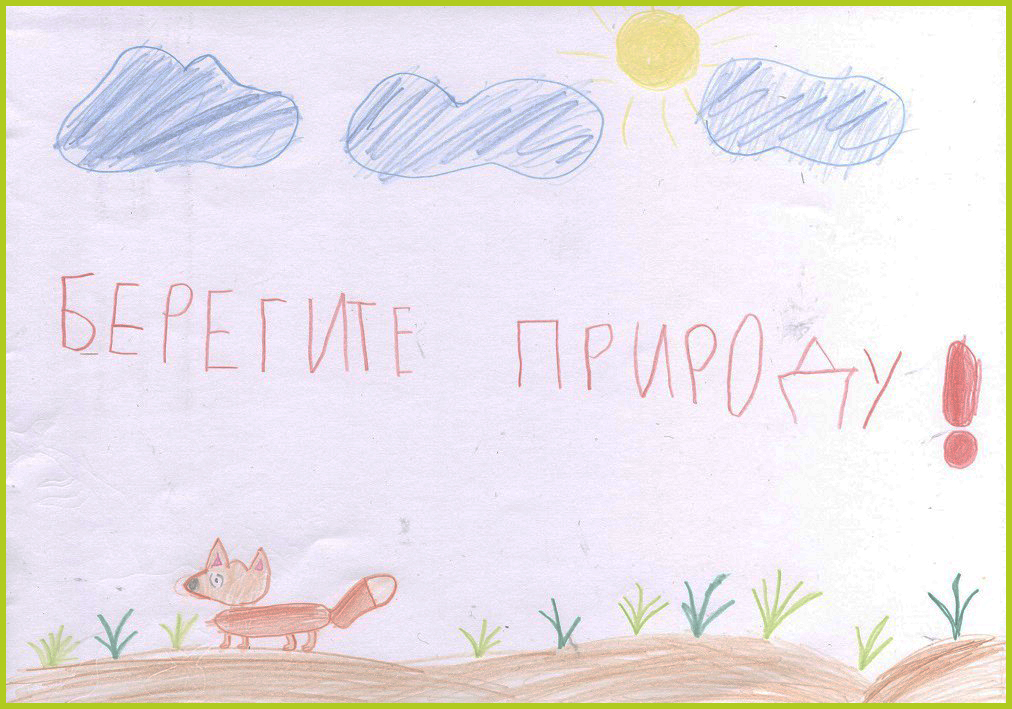 БЕРЕГИТЕ ПРИРОДУ!